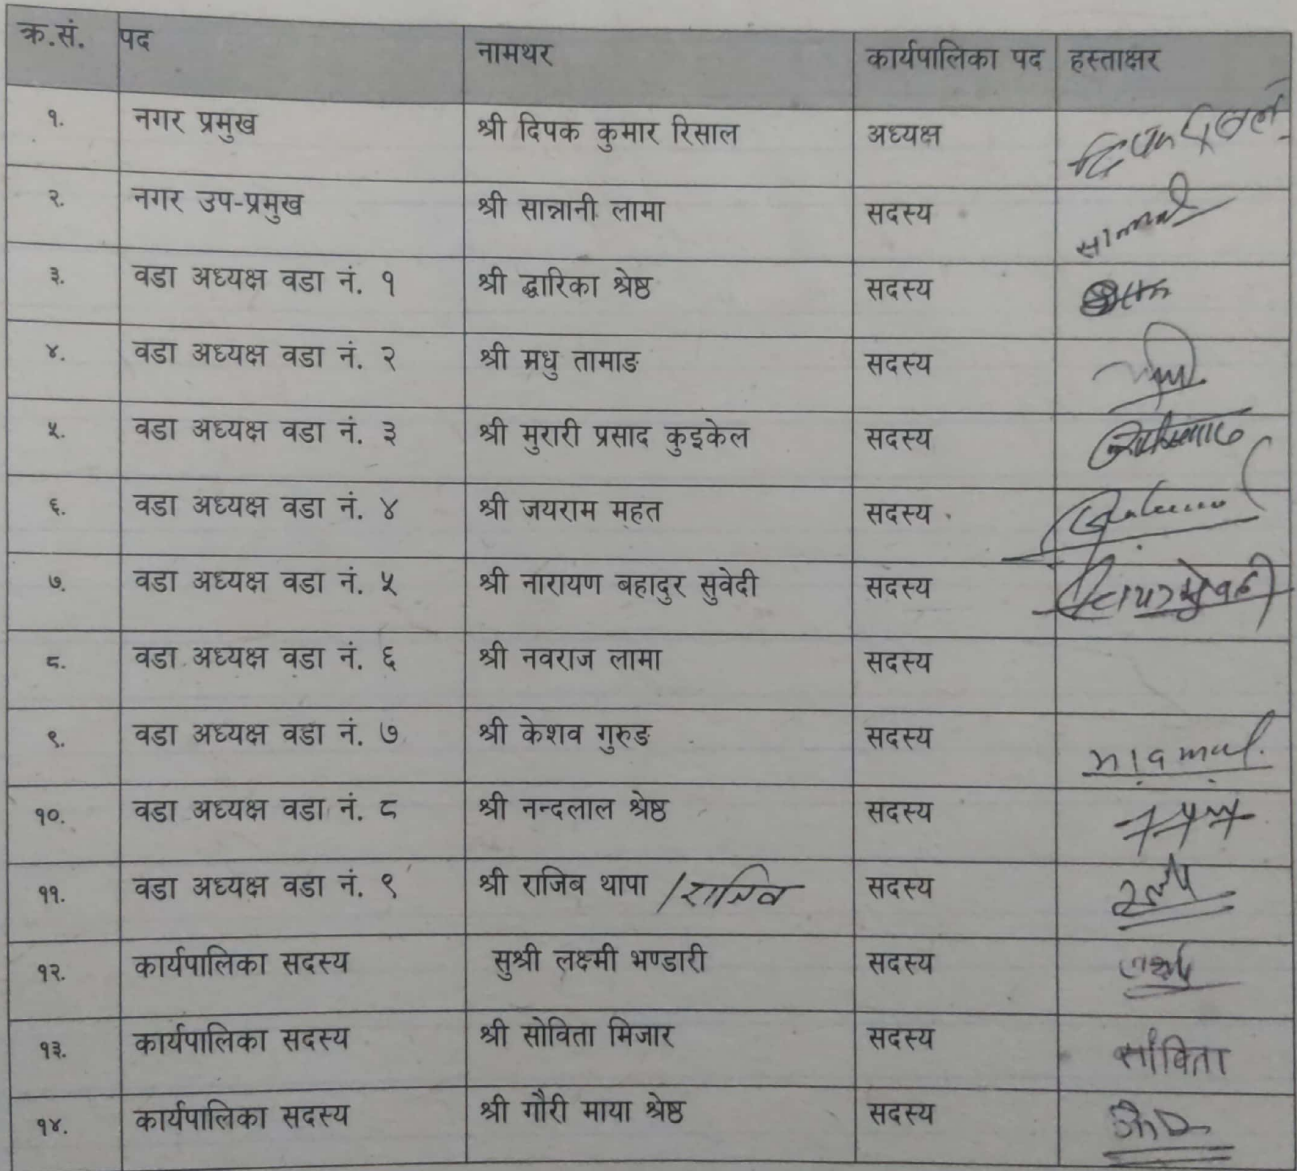 क्र.सं. पद नामथर कार्यपालिका पद हस्ताक्षर
१. नगर प्रमुख श्री दिपक कुमार रिसाल अध्यक्ष
२. नगर उप-प्रमुख श्री सान्नानी लामा सदस्य
३. वडा अध्यक्ष वडा नं. १ श्री द्धारिका श्रेष्ठ सदस्य
४. वडा अध्यक्ष वडा नं. २ श्री मधु तामाङ सदस्य
५. वडा अध्यक्ष वडा नं. ३ श्री मुरारी प्रसाद कुइकेल सदस्य
६. वडा अध्यक्ष वडा नं. ४ श्री जयराम महत सदस्य
७. वडा अध्यक्ष वडा नं. ५ श्री नारायण बहादुर सुवेदी सदस्य
८. वडा अध्यक्ष वडा नं. ६ श्री नवराज लामा सदस्य
९. वडा अध्यक्ष वडा नं. ७ श्री केशव गुरुङ सदस्य
१०. वडा अध्यक्ष वडा नं. ८ श्री नन्दलाल श्रेष्ठ सदस्य
११. वडा अध्यक्ष वडा नं. ९ श्री राजिब थापा /राजिव सदस्य
१२. कार्यपालिका सदस्य सुश्री लक्ष्मी भण्डारी सदस्य
१३. कार्यपालिका सदस्य श्री सोविता मिजार सदस्य सोविता
१४. कार्यपालिका सदस्य श्री गौरी माया श्रेष्ठ सदस्य